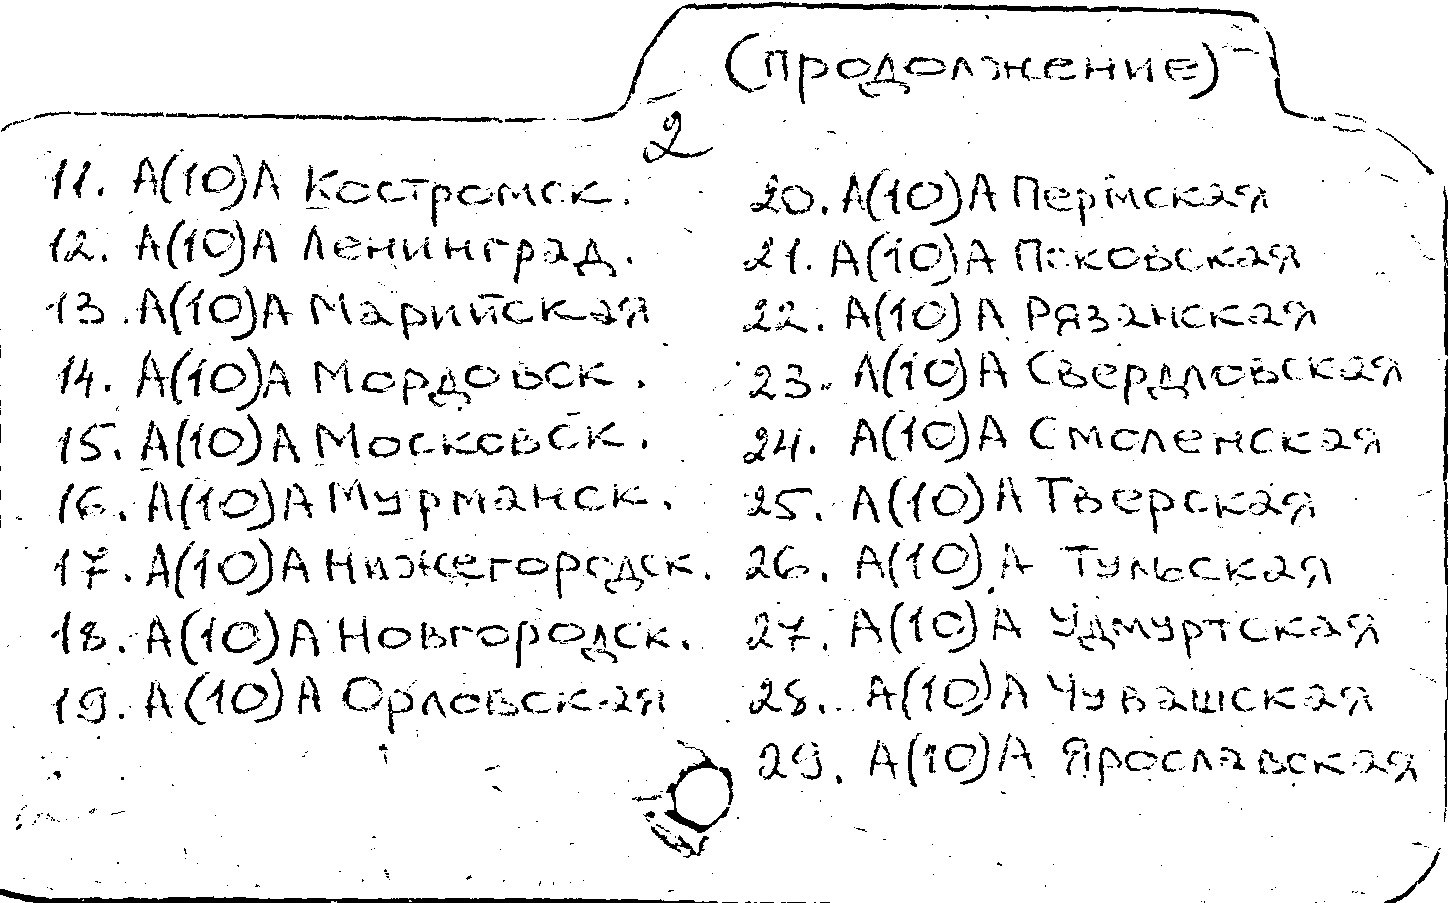 (продолжение)
2
11. А(10)А Костромск.
12. А(10)А Ленинград.
13. А(10)А Марийская
14. А(10)А Мордовск.
15. А(10)А Московск.
16. А(10)А Мурманск.
17. А(10)А Нижегородск.
18. А(10)А Новгородск.
19. А(10)А Орловская
20. А(10)А Пермская
21. А(10)А Псковская
22. А(10)А Рязанская
23. А(10)А Свердловская
24. А(10)А Смоленская
25. А(10)А Тверская
26. А(10)А Тульская
27. А(10)А Удмуртская
28. А(10)А Чувашская
29. А(10)А Ярославская